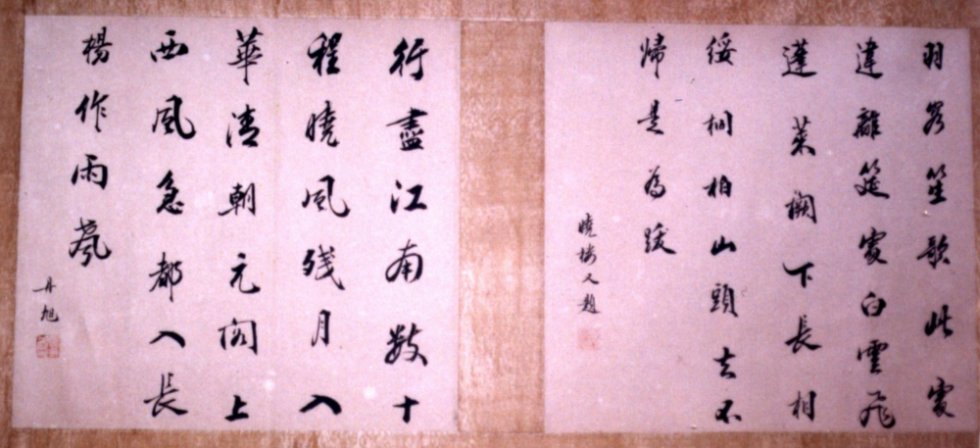 羽客笙歌此處
違離筵處白雲飛
蓬萊闕下長相
綏桐柏山頭去不
歸是為跋
曉樓人題
行盡江南數十
程曉風殘月入
華清朝元閣上
西風急都入長
楊作雨聲
丹旭